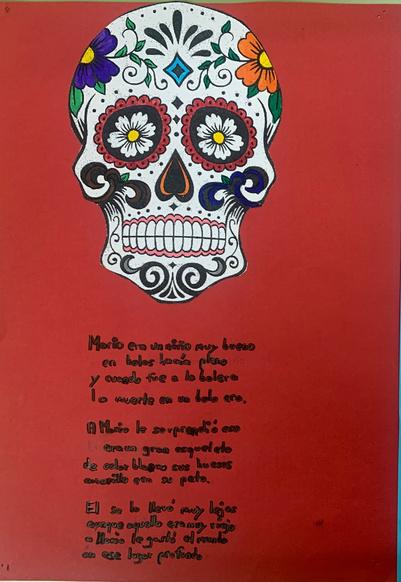 Mario era un niño muy bueno
en bolos hacía pleno
y cuando fue a la bolera
la muerte en un bolo era.
A Mario le sorprendió eso
era un gran esqueleto
de color blanco sus huesos
amarillo era su peto.
El se lo llevó muy lejos
aunque aquello era muy viejo
a Mario le gustó el mundo
en ese lugar profundo